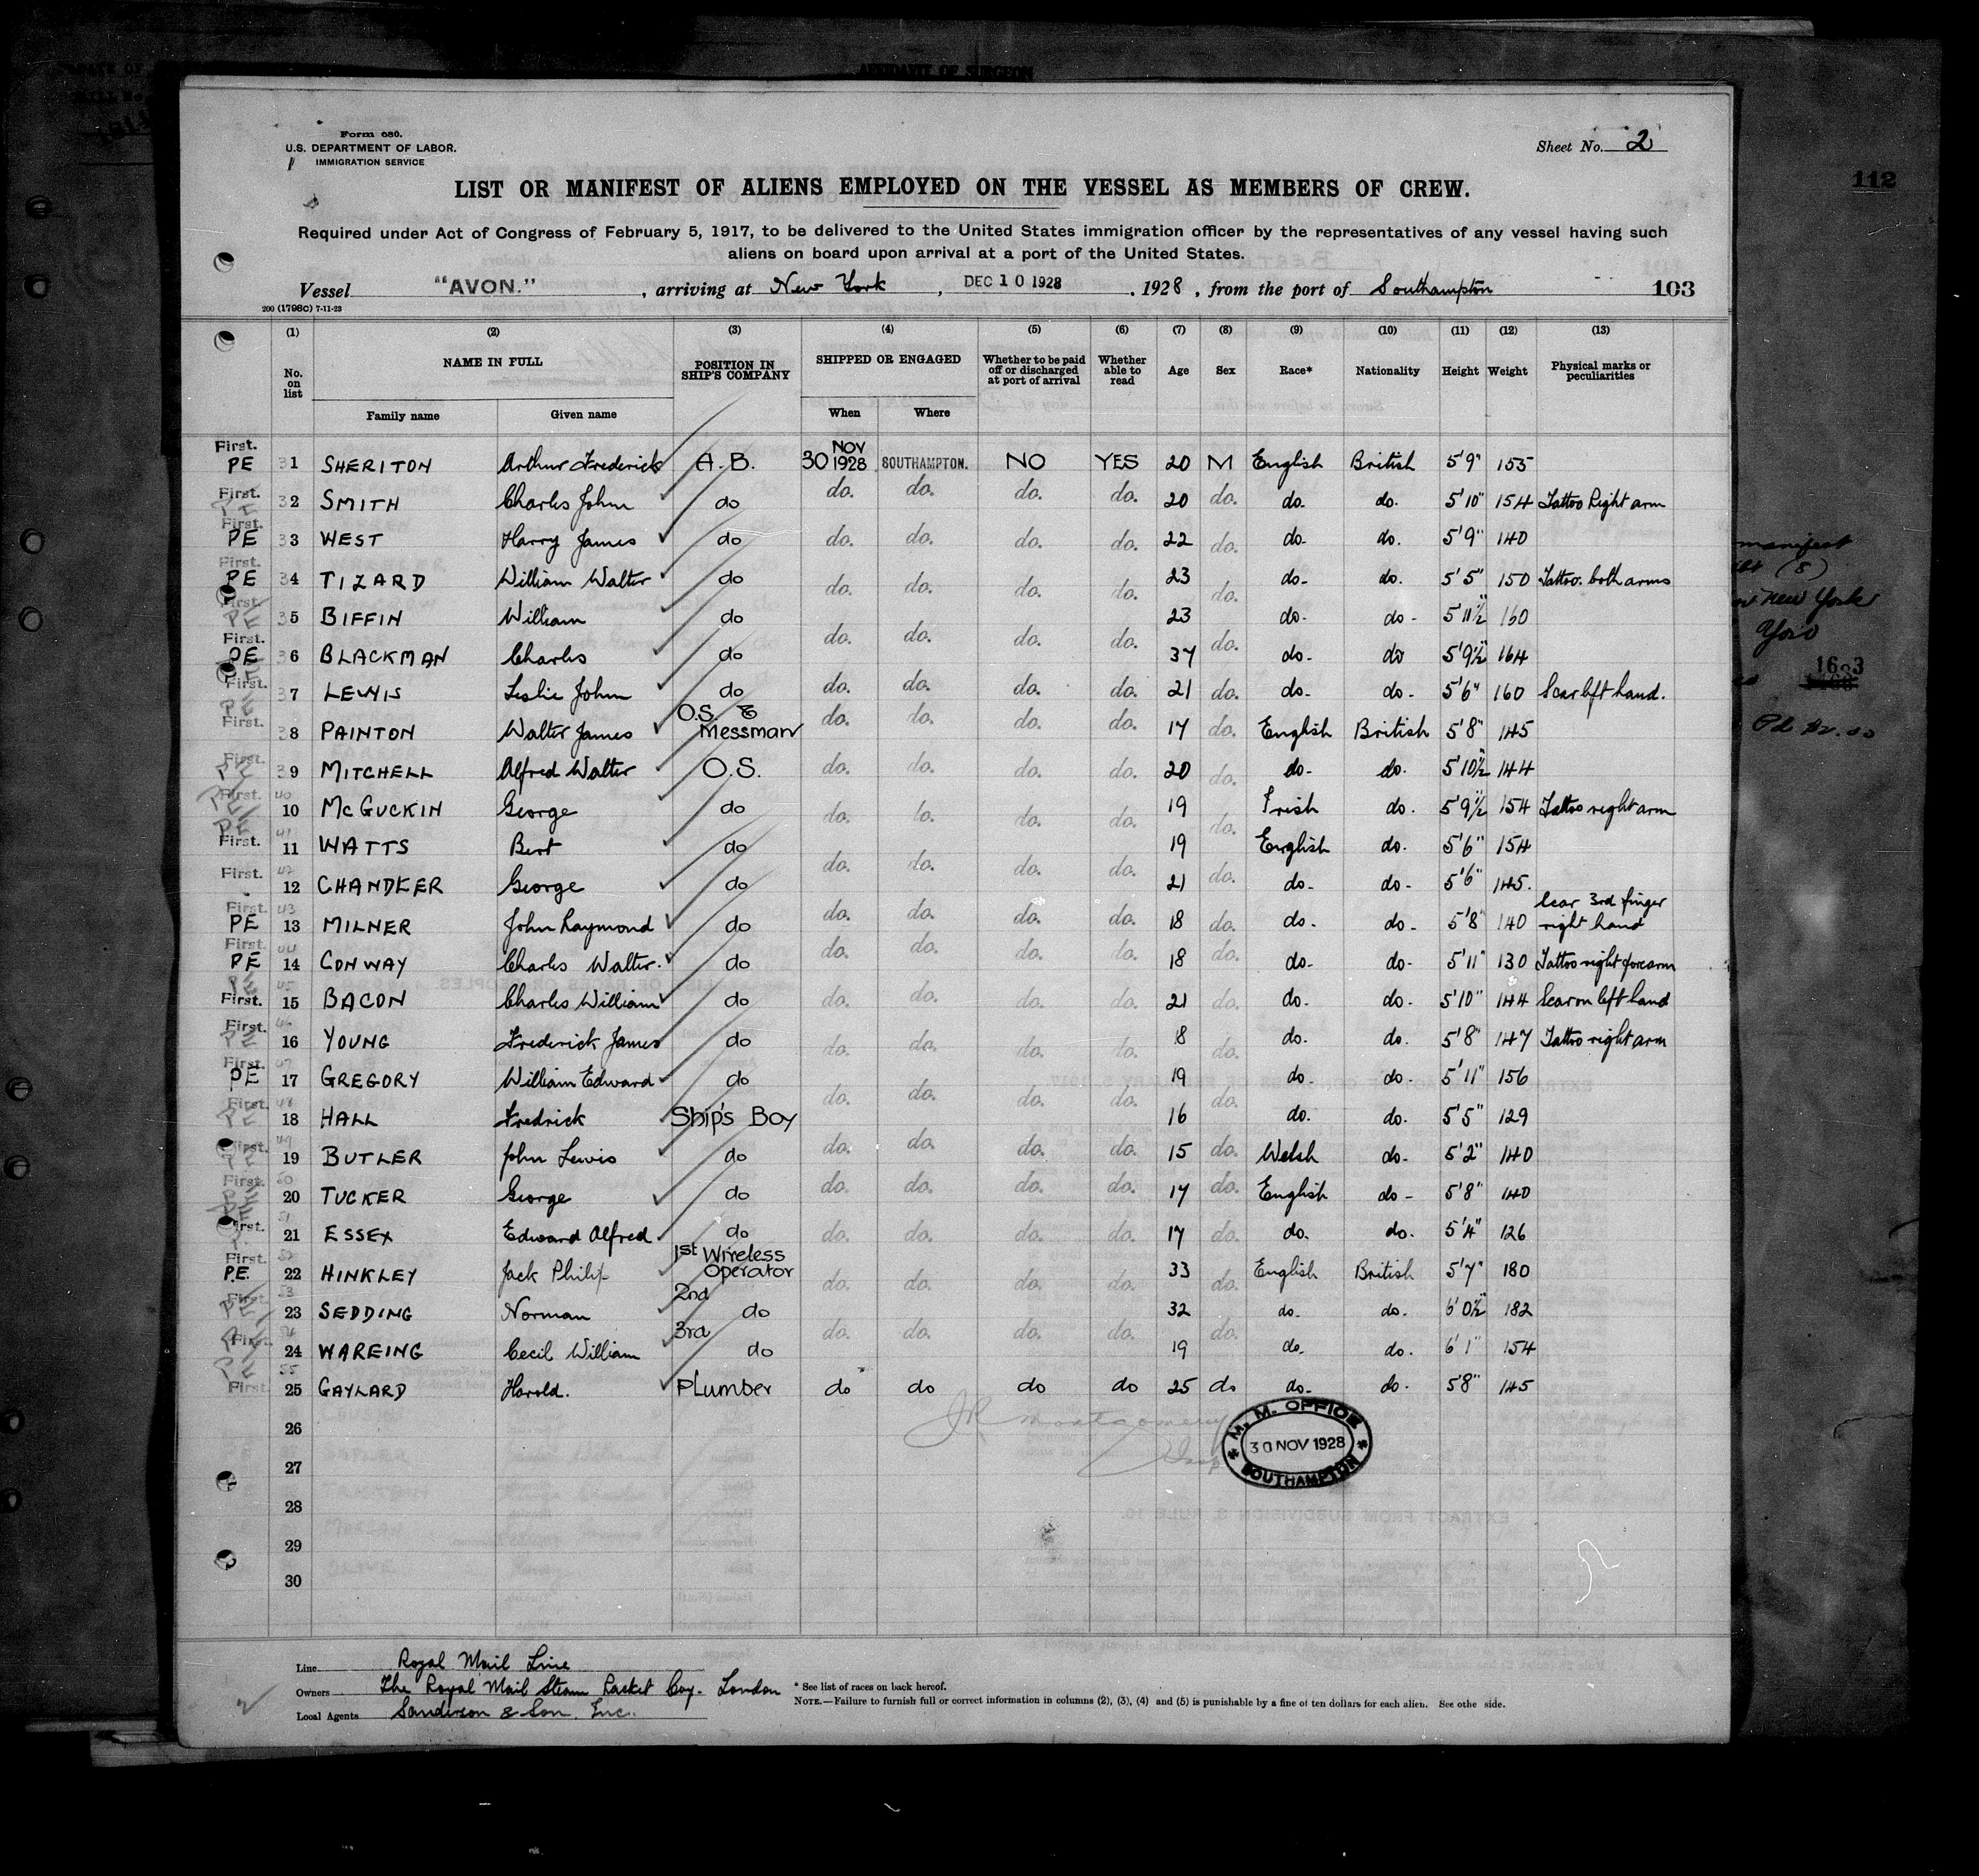 AFFIDAVIT OF SURGEON
Form 680.
U.S. DEPARTMENT OF LABOR.
IMMIGRATION SERVICE
Sheet No. 2
112
LIST OR MANIFEST OF ALIENS EMPLOYED ON THE VESSEL AS MEMBERS OF CREW.
Required under Act of Congress of February 5, 1917, to be delivered to the United States immigration officer by the representatives of any vessel having such
aliens on board upon arrival at a port of the United States.
Vessel "AVON." , arriving at New York , DEC 10 1928 , 1928 , from the port of Southampton 103
200 (1798C) 7-11-23
(1) (2) (3) (4) (5) (6) (7) (8) (9) (10) (11) (12) (13)
No. on list NAME IN FULL POSITION IN SHIP'S COMPANY SHIPPED OR ENGAGED Whether to be paid off or discharged at port of arrival Whether able to read Age Sex Race* Nationality Height Weight Physical marks or peculiarities
Family name Given name When Where
First. PE 31 SHERITON Arthur Frederick A.B. 30 NOV 1928 SOUTHAMPTON. NO YES 20 M English British 5'9" 155
First. PE 32 SMITH Charles John do do. do. do. do. 20 do. do. do. 5'10" 154 Tattoo Right arm
First. PE 33 WEST Harry James do do. do. do. do. 22 do. do. do. 5'9" 140
First. PE 34 TIZARD William Walter do do. do. do. do. 23 do. do. do. 5'5" 150 Tattoo both arms
First. PE 35 BIFFIN William do do. do. do. do. 23 do. do. do. 5'11½" 160
First. PE 36 BLACKMAN Charles do do. do. do. do. 37 do. do. do 5'9½" 164
First. PE 37 LEWIS Leslie John do do. do. do. do. 21 do. do. do. 5'6" 160 Scar left hand.
First. 38 PAINTON Walter James O.S. & Messman do. do. do. do. 17 do. English British 5'8" 145
First. PE 39 MITCHELL Alfred Walter O.S. do. do. do. do. 20 do. do. do. 5'10½" 144
First. PE 40 10 McGUCKIN George do do. do. do. do. 19 do. Irish do. 5'9½" 154 Tattoo right arm
First. PE 41 11 WATTS Bert do do. do. do. do. 19 do. English do. 5'6" 154
First. 42 12 CHANDLER George do do. do. do. do. 21 do. do. do. 5'6" 145.
First. PE 43 13 MILNER John Raymond do do. do. do. do. 18 do. do. do. 5'8" 140 Scar 3rd finger right hand
First. PE 44 14 CONWAY Charles Walter. do do. do. do. do. 18 do. do. do. 5'11" 130 Tattoo right forearm
First. PE 45 15 BACON Charles William do do. do. do. do. 21 do. do. do. 5'10" 144 Scar on left hand
First. PE 46 16 YOUNG Frederick James do do. do. do. do. 8 do. do. do. 5'8" 147 Tattoo right arm
First. PE 47 17 GREGORY William Edward do do. do. do. do. 19 do. do. do. 5'11" 156
First. PE 48 18 HALL Fredrick Ship's Boy do. do. do. do. 16 do. do. do. 5'5" 129
First. PE 49 19 BUTLER John Lewis do do. do. do. do. 15 do. Welsh do. 5'2" 140
First. PE 50 20 TUCKER George do do. do. do. do. 17 do. English do 5'8" 140
First. 51 21 ESSEX Edward Alfred do do. do. do. do. 17 do. do. do. 5'4" 126
First. P.E. 52 22 HINKLEY Jack Philip 1st Wireless Operator do. do. do. do. 33 do. English British 5'7" 180
First. PE 53 23 SEDDING Norman 2nd do do. do. do. do. 32 do. do. do. 6'0½" 182
First. PE 54 24 WAREING Cecil William 3rd do 19 do. do. 6'1" 154
First. PE 55 25 GAYLARD Harold. Plumber do do do do 25 do do. do. 5'8" 145
26
27
28
29
30
JR Montgomery
M. M. OFFICE
30 NOV 1928
SOUTHAMPTON
manifest
(8)
New York
1663
Pd $2.00
Line Royal Mail Line
Owners The Royal Mail Steam Packet Coy. London
Local Agents Sanderson & Son. Inc.
* See list of races on back hereof.
NOTE.—Failure to furnish full or correct information in columns (2), (3), (4) and (5) is punishable by a fine of ten dollars for each alien. See othe side.
2